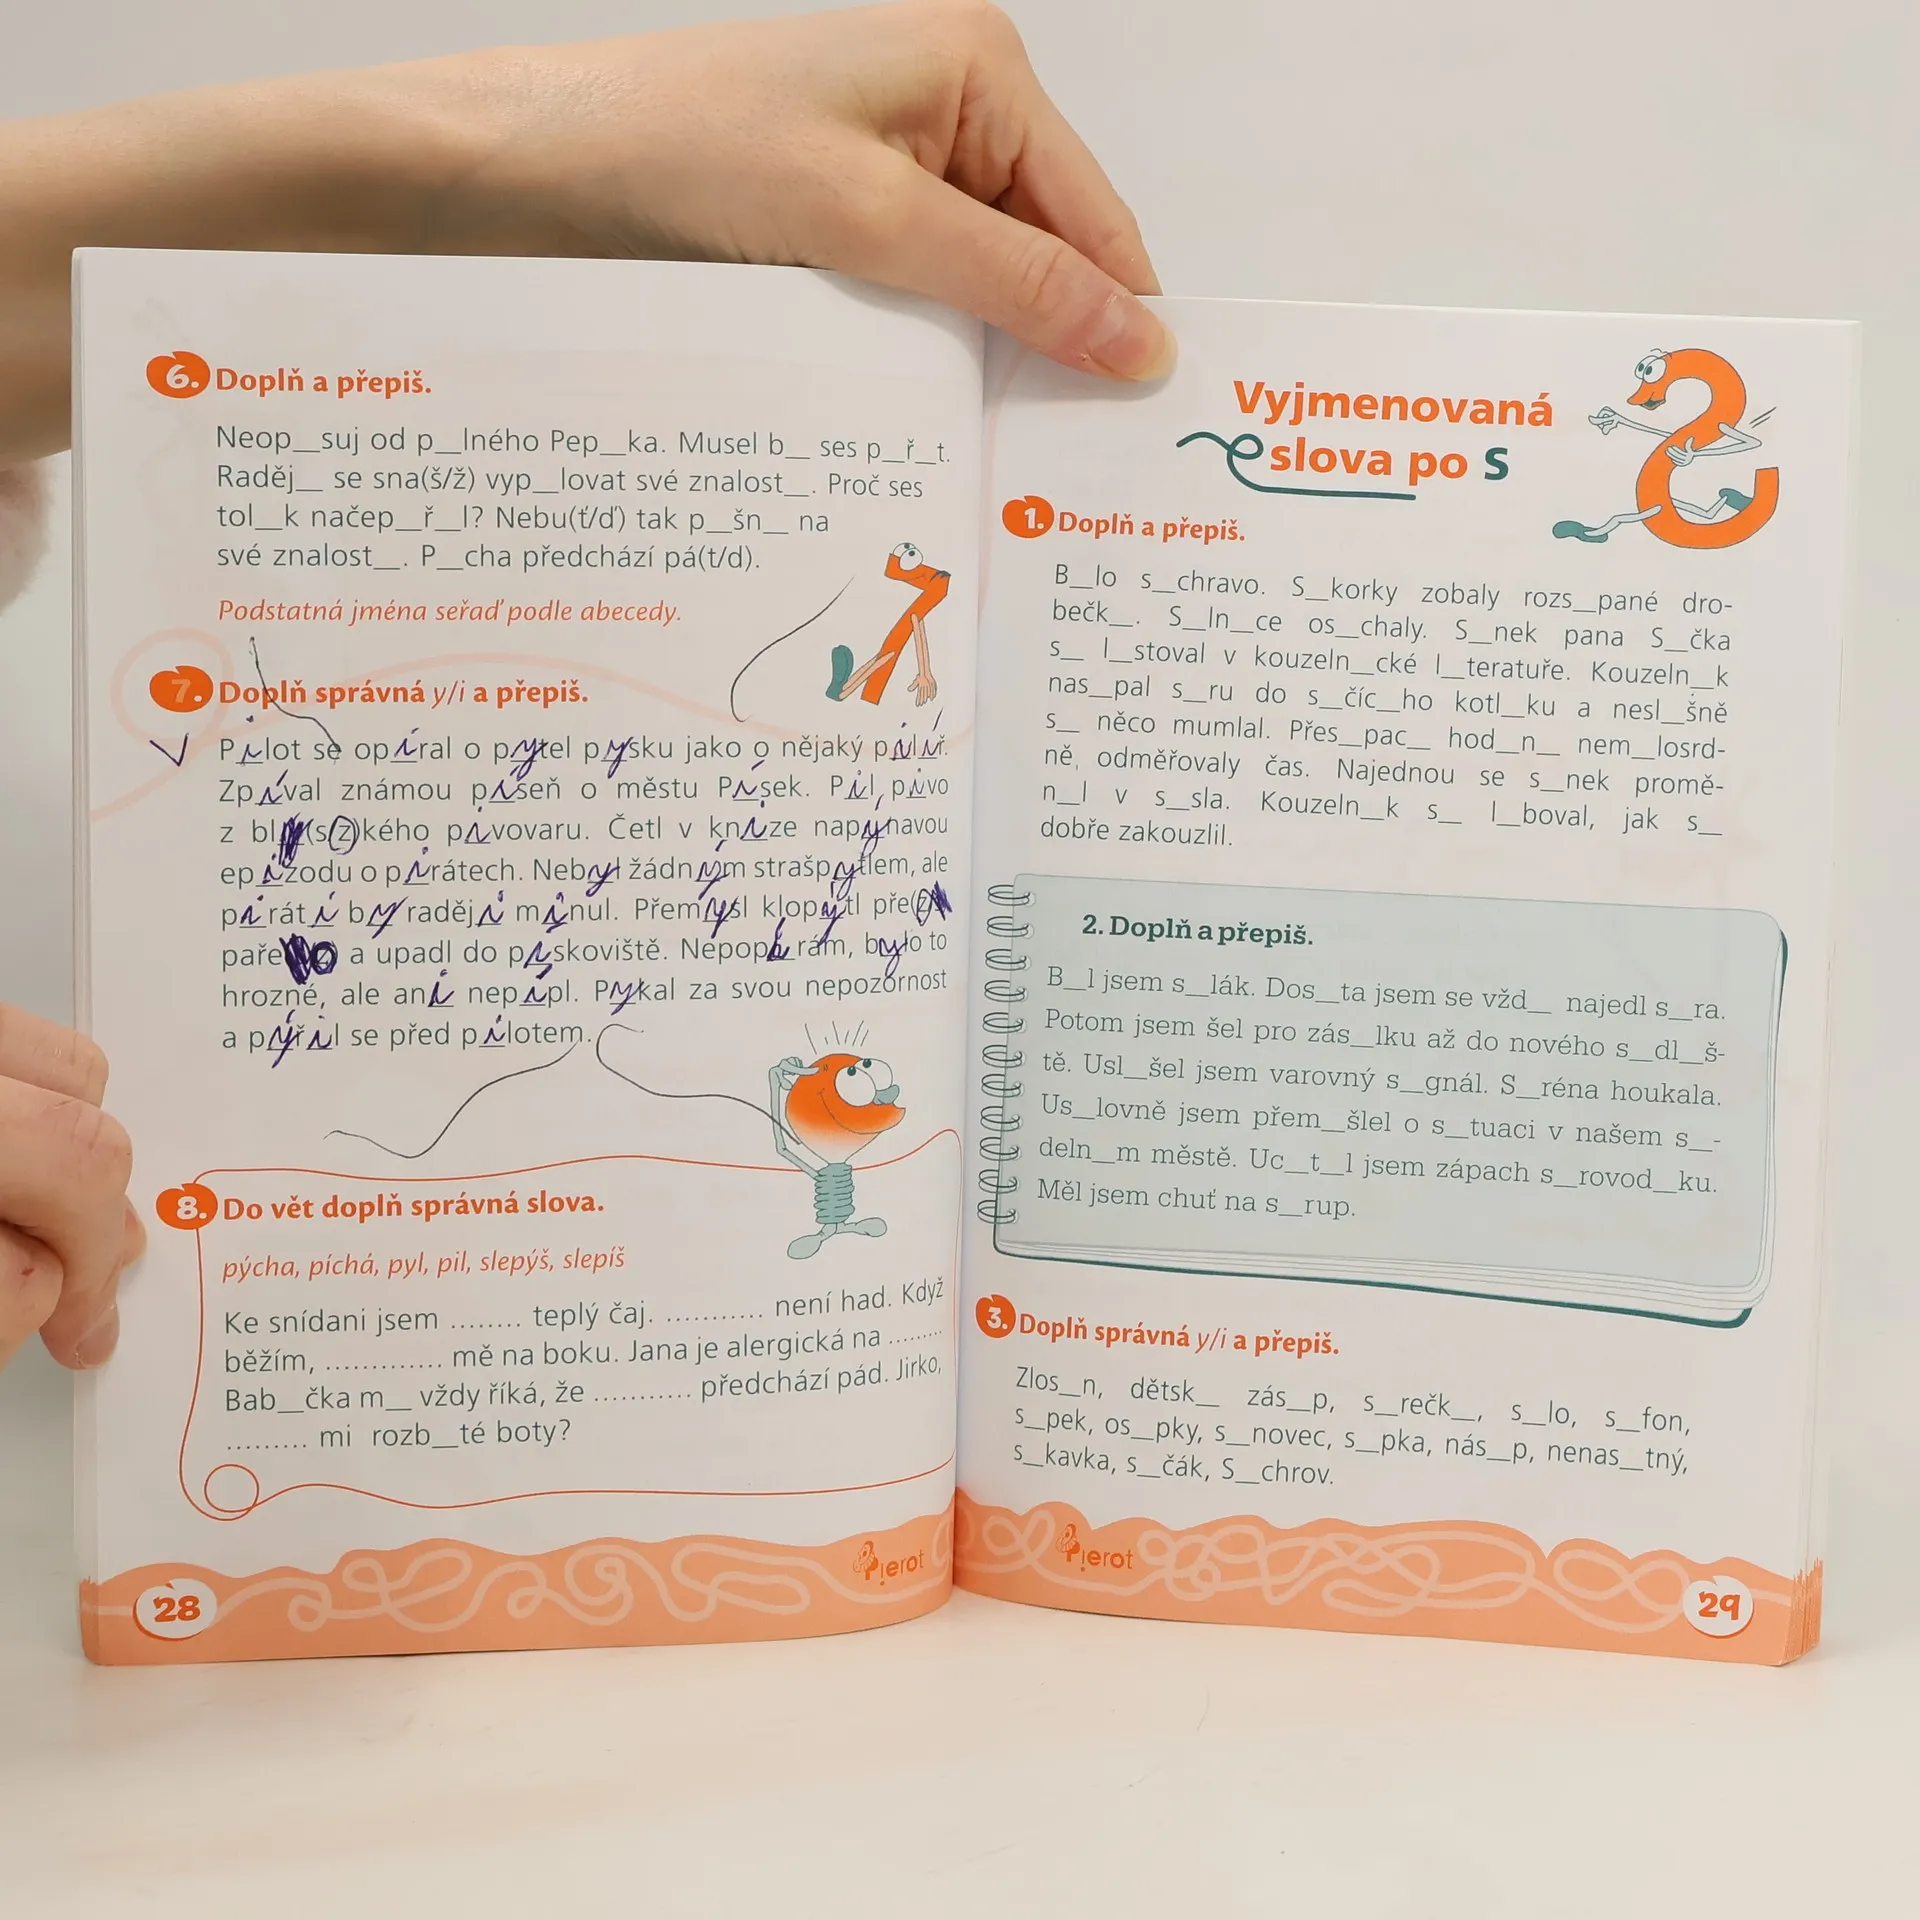 6. Doplň a přepiš.
Neop__suj od p__lného Pep__ka. Musel b__ ses p__ř__t.
Raděj__ se sna(š/ž) vyp__lovat své znalost__. Proč ses
tol__k načep__ř__l? Nebu(ť/ď) tak p__šn__ na
své znalost__. P__cha předchází pá(t/d).
Podstatná jména seřaď podle abecedy.
7. Doplň správná y/i a přepiš.
Pilot se opíral o pytel pysku jako o nějaký pilíř.
Zpíval známou píseň o městu Písek. Pil pivo
z bl(s/z)kého pivovaru. Četl v knize napynavou
epizodu o pirátech. Nebyl žádným strašpytlem, ale
piráti by raději minul. Přemysl klopýtl pře(z
paře a upadl do pískoviště. Nepopírám, bylo to
hrozné, ale ani nepípl. Pykal za svou nepozornost
a pýřil se před pilotem.
8. Do vět doplň správná slova.
pýcha, píchá, pyl, pil, slepýš, slepíš
Ke snídani jsem ........ teplý čaj. ........... není had. Když
běžím, ............. mě na boku. Jana je alergická na .........
Bab__čka m__ vždy říká, že ........... předchází pád. Jirko,
......... mi rozb__té boty?
Pierot
28
Vyjmenovaná
slova po S
1. Doplň a přepiš.
B__lo s__chravo. S__korky zobaly rozs__pané dro-
bečk__. S__ln__ce os__chaly. S__nek pana S__čka
s__ l__stoval v kouzeln__cké l__teratuře. Kouzeln__k
nas__pal s__ru do s__číc__ho kotl__ku a nesl__šně
s__ něco mumlal. Přes__pac__ hod__n__ nem__losrd-
ně, odměřovaly čas. Najednou se s__nek promě-
n__l v s__sla. Kouzeln__k s__ l__boval, jak s__
dobře zakouzlil.
2. Doplň a přepiš.
B__l jsem s__lák. Dos__ta jsem se vžd__ najedl s__ra.
Potom jsem šel pro zás__lku až do nového s__dl__š-
tě. Usl__šel jsem varovný s__gnál. S__réna houkala.
Us__lovně jsem přem__šlel o s__tuaci v našem s__-
deln__m městě. Uc__t__l jsem zápach s__rovod__ku.
Měl jsem chuť na s__rup.
3. Doplň správná y/i a přepiš.
Zlos__n, dětsk__ zás__p, s__rečk__, s__lo, s__fon,
s__pek, os__pky, s__novec, s__pka, nás__p, nenas__tný,
s__kavka, s__čák, S__chrov.
Pierot
29